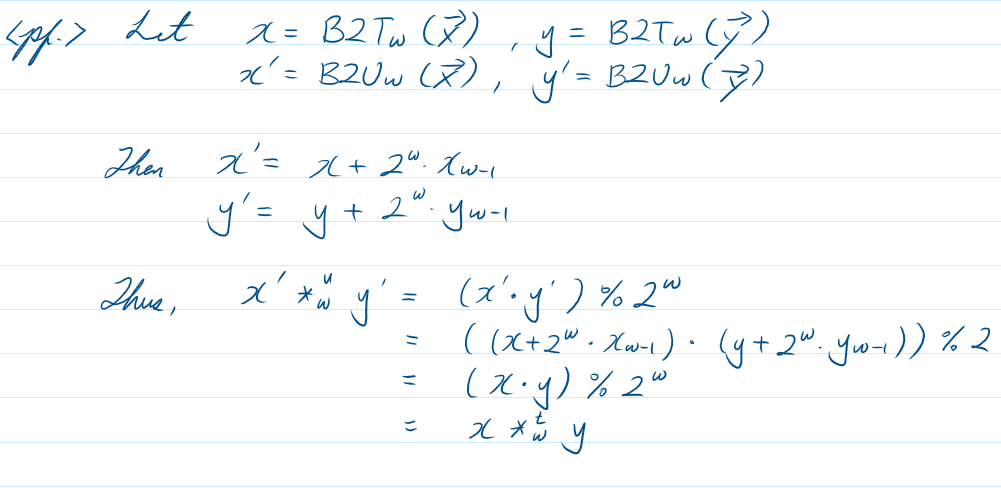 <pf.> Let x = B2Tw (x⃗) , y = B2Tw (y⃗)
x' = B2Uw (x⃗) , y' = B2Uw (y⃗)
Then x' = x + 2^w · x_{w-1}
y' = y + 2^w · y_{w-1}
Thus, x' *^u_w y' = (x' · y') % 2^w
= ( (x + 2^w · x_{w-1}) · (y + 2^w · y_{w-1})) % 2
= (x · y) % 2^w
= x *^t_w y